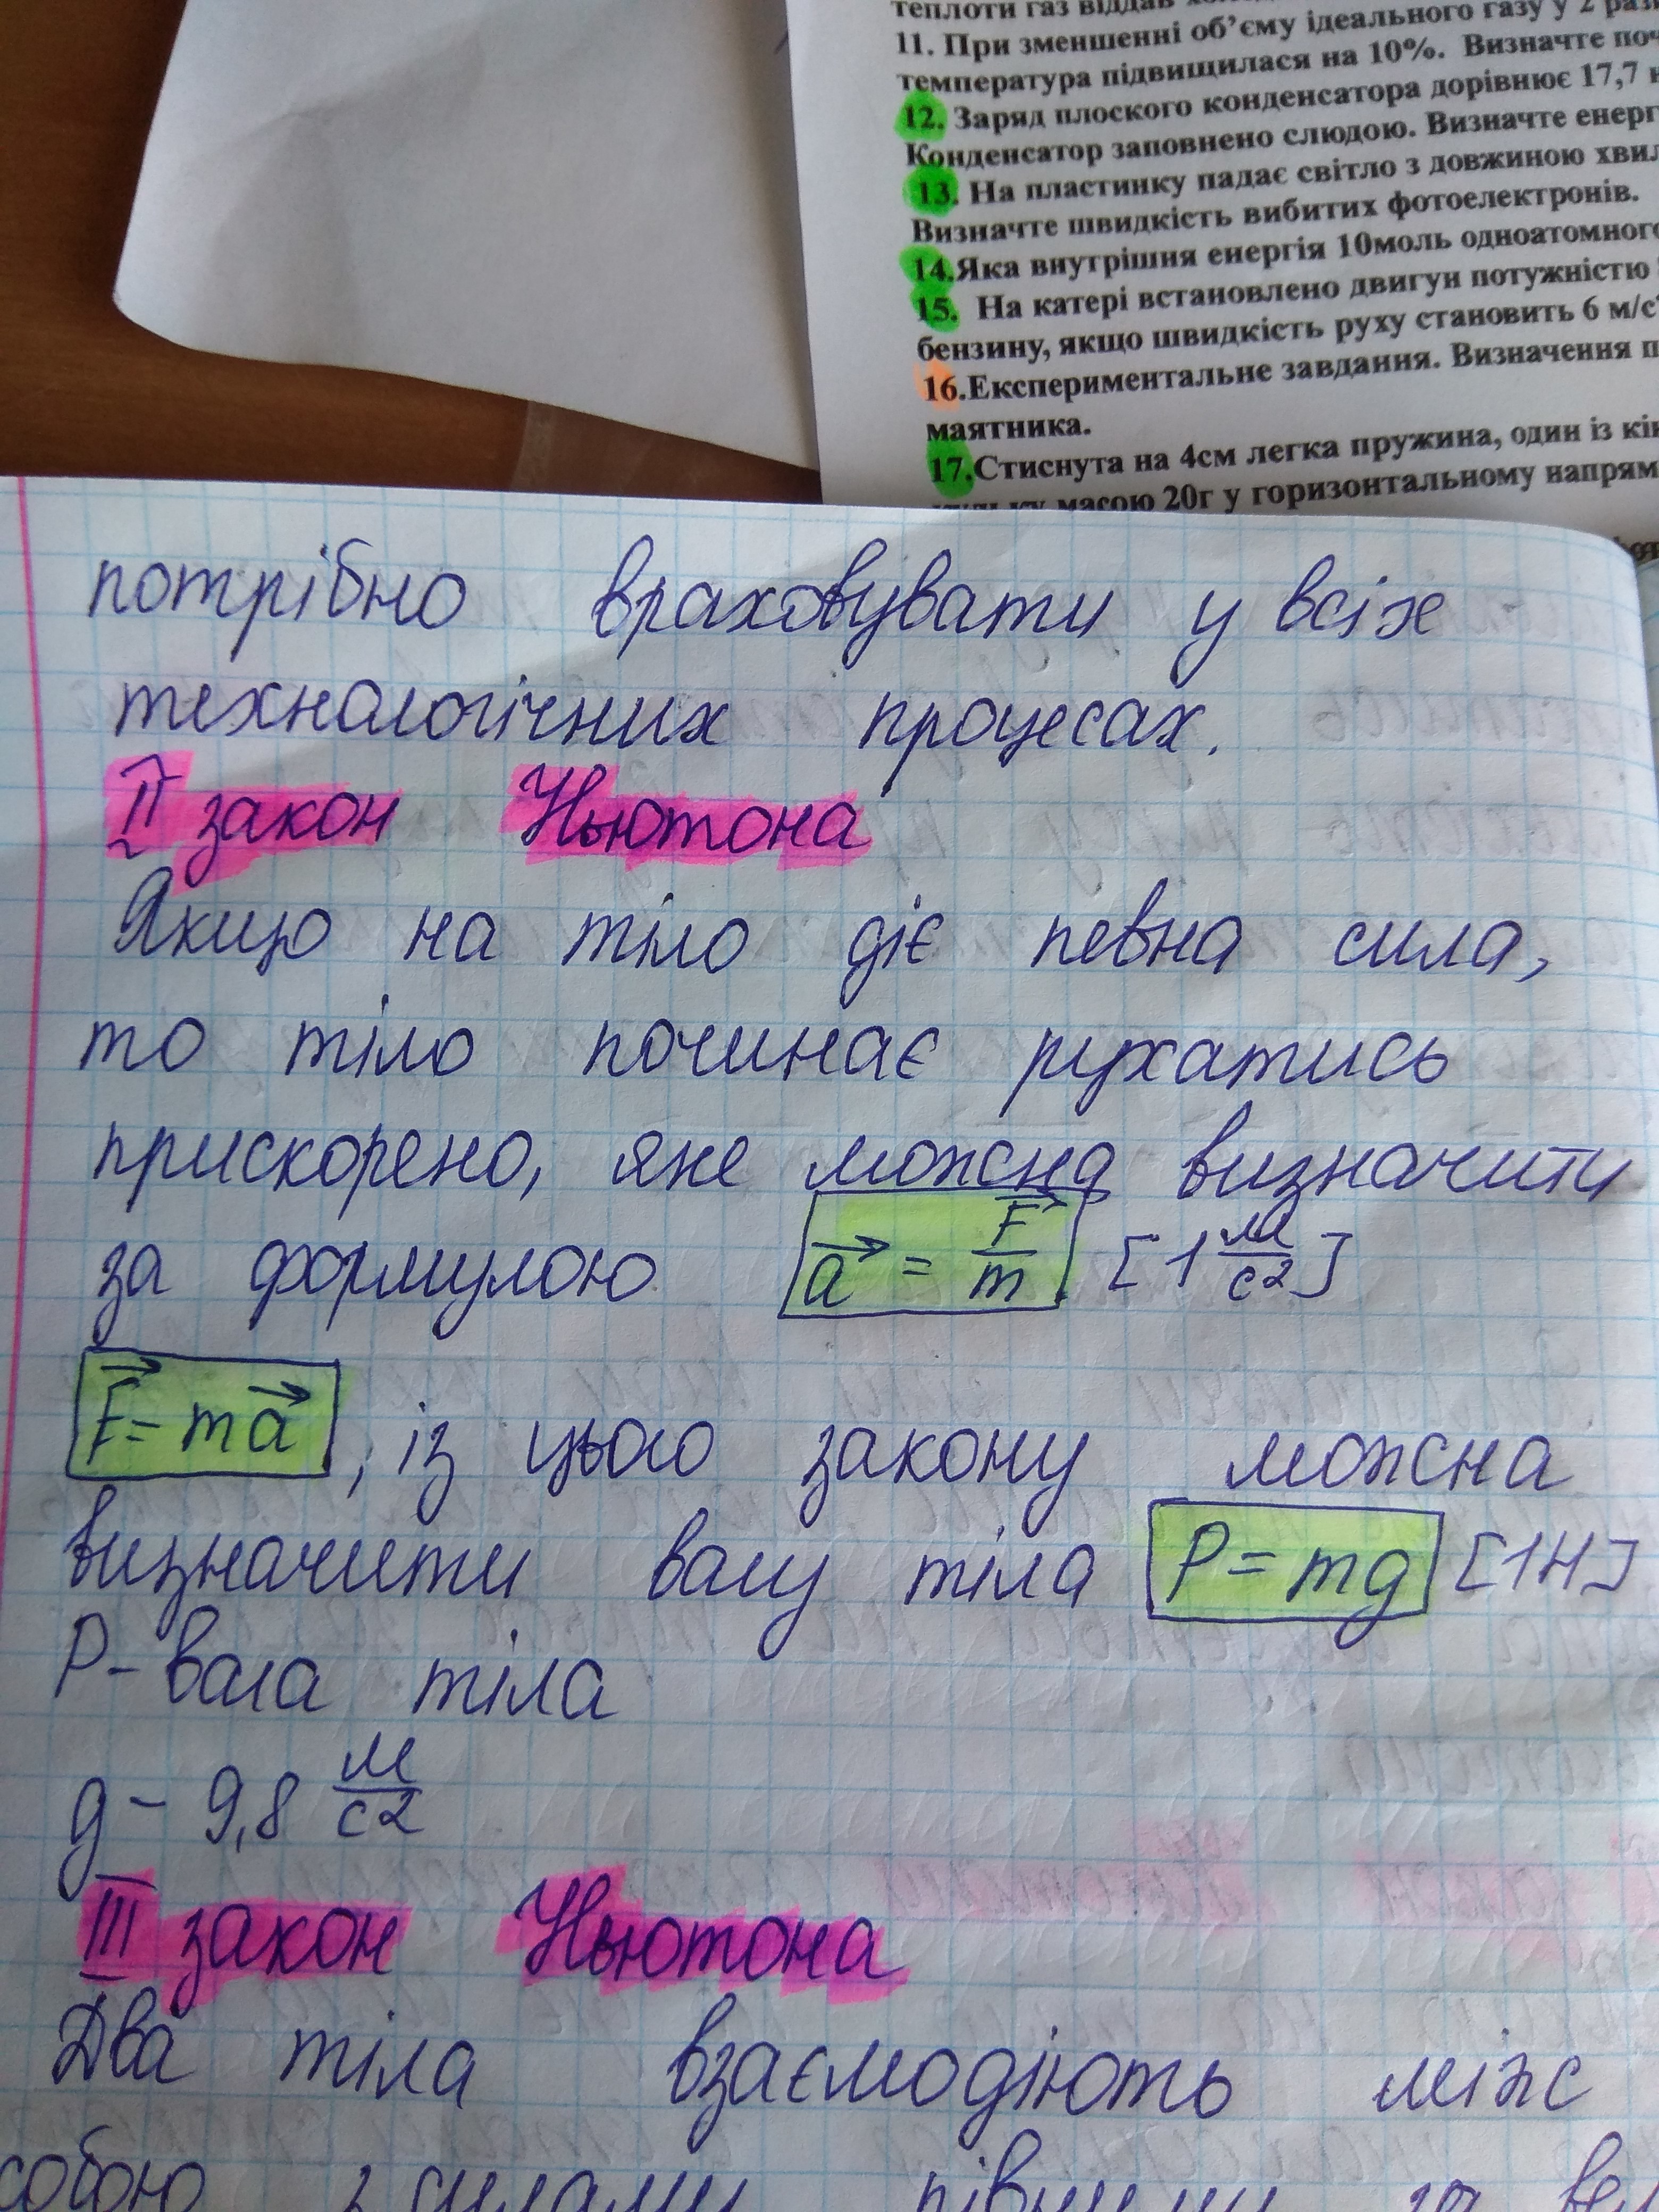 теплоти газ віддав
11. При зменшенні об’єму ідеального газу у 2
температура підвищилася на 10%. Визначте
12. Заряд плоского конденсатора дорівнює 17,7
Конденсатор заповнено слюдою. Визначте
13. На пластинку падає світло з довжиною
Визначте швидкість вибитих фотоелектронів.
14.Яка внутрішня енергія 10моль одноатомного
15. На катері встановлено двигун потужністю
бензину, якщо швидкість руху становить 6 м/с
16.Експериментальне завдання. Визначення
маятника.
17.Стиснута на 4см легка пружина, один із
масою 20г у горизонтальному
потрібно враховувати у всіх
технологічних процесах.
II закон Ньютона
Якщо на тіло діє певна сила,
то тіло починає рухатись
прискорено, яке можна визначити
за формулою a⃗ = F⃗/m [1 м/с2]
F⃗ = ma⃗, із цього закону можна
визначити вагу тіла P = mg [1Н]
P – вага тіла
g – 9,8 м/с2
III закон Ньютона
Два тіла взаємодіють між
собою з силами рівними за